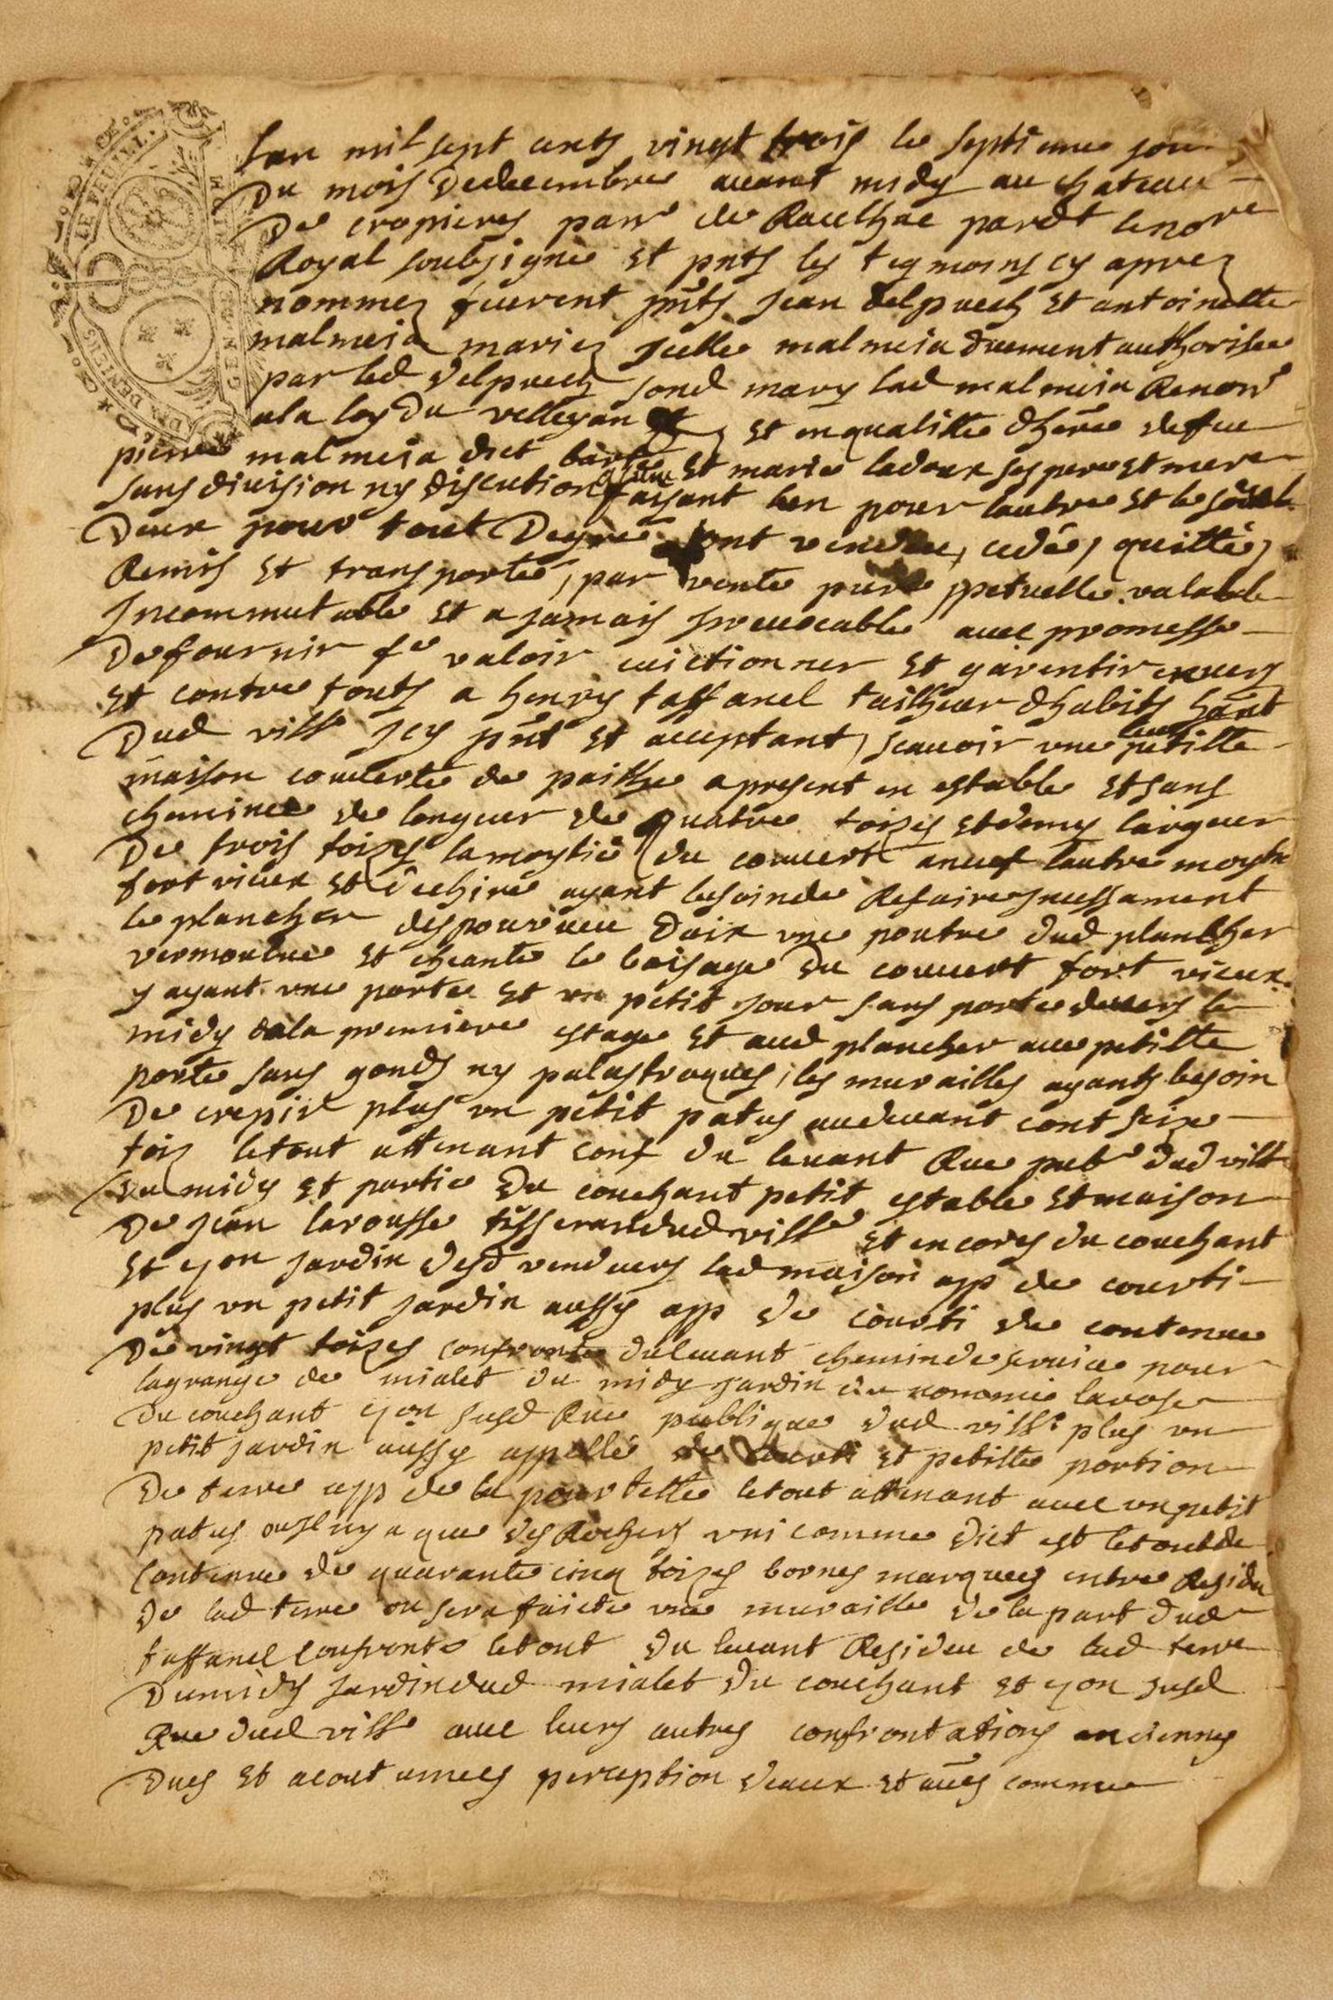 Lan mil sept cents vingt trois le septieme jour
Du mois Dedecembre auant midy au chateau
De cropieres parr de Raulhac pardt lenore
Royal soubsigne Et pnts les tegmoins cy aprez
nommez furent pnts Jean delpuech Et antoinette
malmeia mariez Jcelle malmeia duement authorisee
par led delpuech sond mary lad malmeia Renon
ala loy du velleyan Et en qualitte dhere defeu
pierre malmeia dict Et marie ladoux ses pere et mere
sans diuision ny discution faisant lun pour lautre Et le seul
Deux pour tout De gre ont vendeu, cede, quitte,
Remis Et transporte, par vente pure ppetuelle valable
Jncommutable Et a jamais Jrreuocable auec promesse
De fournir fe valoir euictionner Et garentir enuers
Et contre touts a henry taffanel tailheur dhabits hant
Dud ville Jcy pnt Et acceptant, scauoir une leur petitte
maison couuerte de pailhe apresent en estable Et sans
cheminee de longueur de quatre toizes et demy largeur
De trois toizes la moytie du couuert a neuf lautre moytie
fort vieux Et dechire ayant besoin de Refaire Jncessament
le plancher despourueu daix une poutre dud plancher
vermoulue Et cheante le boisage du couuert fort vieux
y ayant une porte Et un petit jour sans porte deuers le
midy dala premiere estage Et aud plancher une petitte
porte sans gonds ny palastrages, les murailles ayants besoin
De crepir plus un petit patus audeuant cont seize
toiz letout attenant conf du leuant Rue pub dud ville
Du midy Et partie du couchant petit estable Et maison
De jean larousse tisseran dud ville Et encores du couchant
Et yon jardin desd vendeurs lad maison app de courti
plus un petit jardin aussy app de courti de contenue
De vingt toizes confronte duleuant chemin de seruice pour
la grange de mialet du midy jardin de
Du couchant yon susd Rue publique dud ville plus un
petit jardin aussy appelle de courti Et petitte portion
De terre app de la pourtette letout attenant auec un petit
patus ou Jl ny a que des Rochers uni comme dict est letout de
contenue de quarante cinq toizes bornes marquees entre Residu
De lad terre ou sera faicte une muraille de la part dud
taffanel confronte letout du leuant Residu de lad terre
Dumidy jardin dud mialet du couchant et yon susd
Rue dud ville auec leurs autres confrontations anciennes
Dues Et acoutumees perception deaux Et aues comme
LE FEUILL.
DIX DENIERS